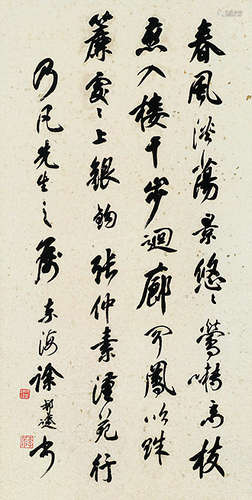 春風淡蕩景悠〻鶯囀高枝
燕入樓千步迴廊聞鳳吹珠
簾處〻上銀鉤 張仲素漢苑行
乃凡先生之屬 東海徐邦達書